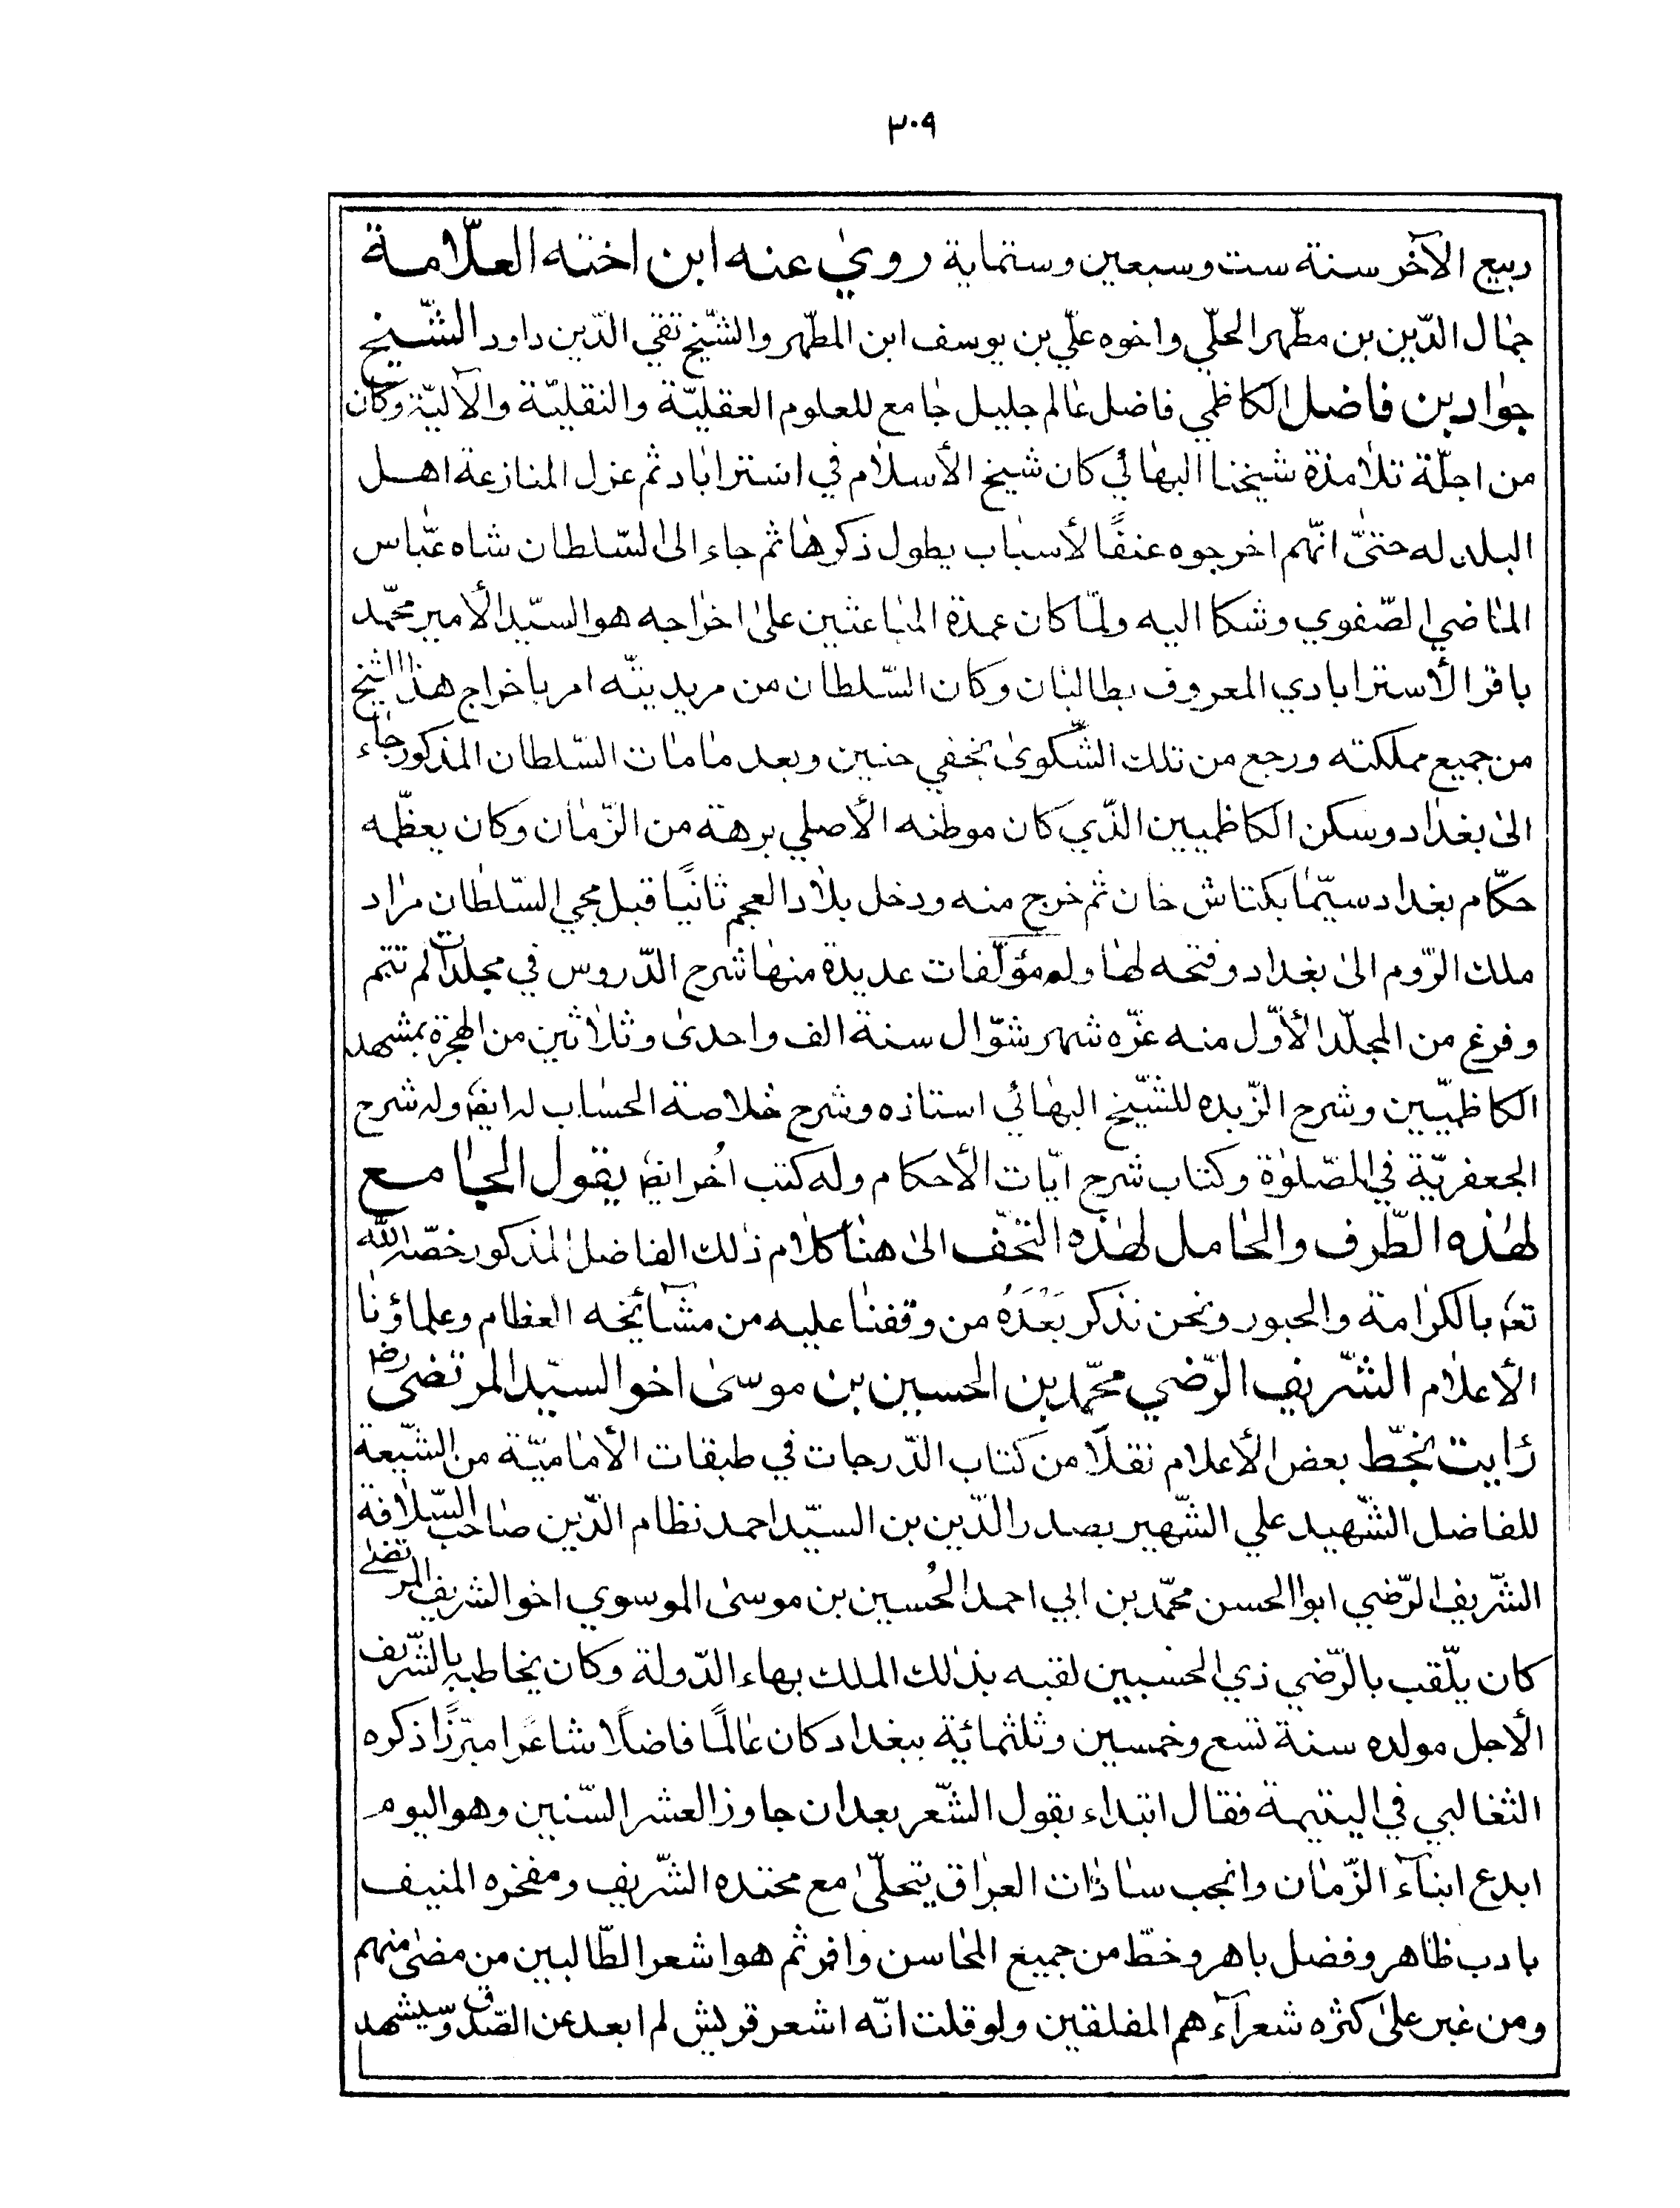 ٣٠٩
ربيع الآخر سنة ست وسبعين وستماية روىٰ عنه ابن اخته العلّامة
جمال الدّين بن مطهّر الحلّي واخوه علّي بن يوسف ابن المطهر والشّيخ تقي الدّين داود الشّيخ
جواد بن فاضل الكاظمي فاضل عالم جليل جامع للعلوم العقليّة والنقليّة والآليّة وكان
من اجلّة تلامذة شيخنا البهائي كان شيخ الأسلام في استراباد ثم عزل المنازعة اهل
البلد له حتىّ انّهم اخرجوه عنفًا لأسباب يطول ذكرها ثم جاء الى السّلطان شاه عبّاس
الماضي الصّفوي وشكا اليه ولمّا كان عمدة الباعثين على اخراجه هو السيّد الأمير محمّد
باقر الأسترابادي المعروف بطالبان وكان السّلطان من مريديتّه امر باخراج هذا الشيخ
من جميع مملكته ورجع من تلك الشّكوىٰ بخفي حنين وبعد ما مات السّلطان المذكور جاء
الىٰ بغداد وسكن الكاظميين الذّي كان موطنه الأصلي برهة من الزّمان وكان يعظّمه
حكّام بغداد سيّما بكتاش خان ثم خرج منه ودخل بلاد العجم ثانيًا قبل مجي السّلطان مراد
ملك الرّوم الىٰ بغداد وفتحه لها وله مؤلّفات عديدة منها شرح الدّروس في مجلدات لم تتم
وفرغ من المجلّد الأوّل منه غرّه شهر شوّال سنة الف واحدى وثلاثين من الهجرة بمشهد
الكاظميّين وشرح الزّبده للشّيخ البهائي استاذه وشرح خلاصة الحساب له ايضا وله شرح
الجعفريّة في الصّلوٰة وكتاب شرح ايّات الأحكام وله كتب اُخر ايضا يقول الجامع
لهذه الطّرف والحامل لهذه التحّف الى هنا كلام ذلك الفاضل المذكور خصّه الله
تعہ بالكرامة والحبور ونحن نذكر بَعْدَهُ من وقفنا عليه من مشآئخه العظام وعلماؤنا
الأعلام الشّريف الرّضي محمّد بن الحسين بن موسىٰ اخو السيّد المرتضىٰ رض
رايت بخطّ بعض الأعلام نقلًا من كتاب الدّرجات في طبقات الأماميّة من الشّيعة
للفاضل الشّهيد علي الشّهير بصدر الدّين بن السيّد احمد نظام الدّين صاحب السّلافة
الشّريف الرّضي ابوا الحسن محمّد بن ابي احمد الحُسين بن موسىٰ الموسوي اخو الشريف المرتضىٰ
كان يلّقب بالرّضي ذي الحسبين لقبه بذلك الملك بهاء الدّولة وكان يخاطبه بالشّريف
الأجل مولده سنة تسع وخمسين وثلثمائة ببغداد كان عالمًا فاضلًا شاعرًا مبرّزًا ذكره
الثغالبي في اليتيمة فقال ابتداء يقول الشّعر بعد ان جاوز العشر السّنين وهو اليوم
ابدع ابنآء الزّمان وانجب سادات العراق يتحلّىٰ مع محتده الشّريف ومفخره المنيف
بادب ظاهر وفضل باهر وخطّ من جميع المحاسن وافر ثم هو اشعر الطّالبين من مضىٰ منهم
ومن غبر علىٰ كثره شعرآءهم المفلقين ولو قلت انّه اشعر قريش لم ابعد عن الصّدق وسيشهد